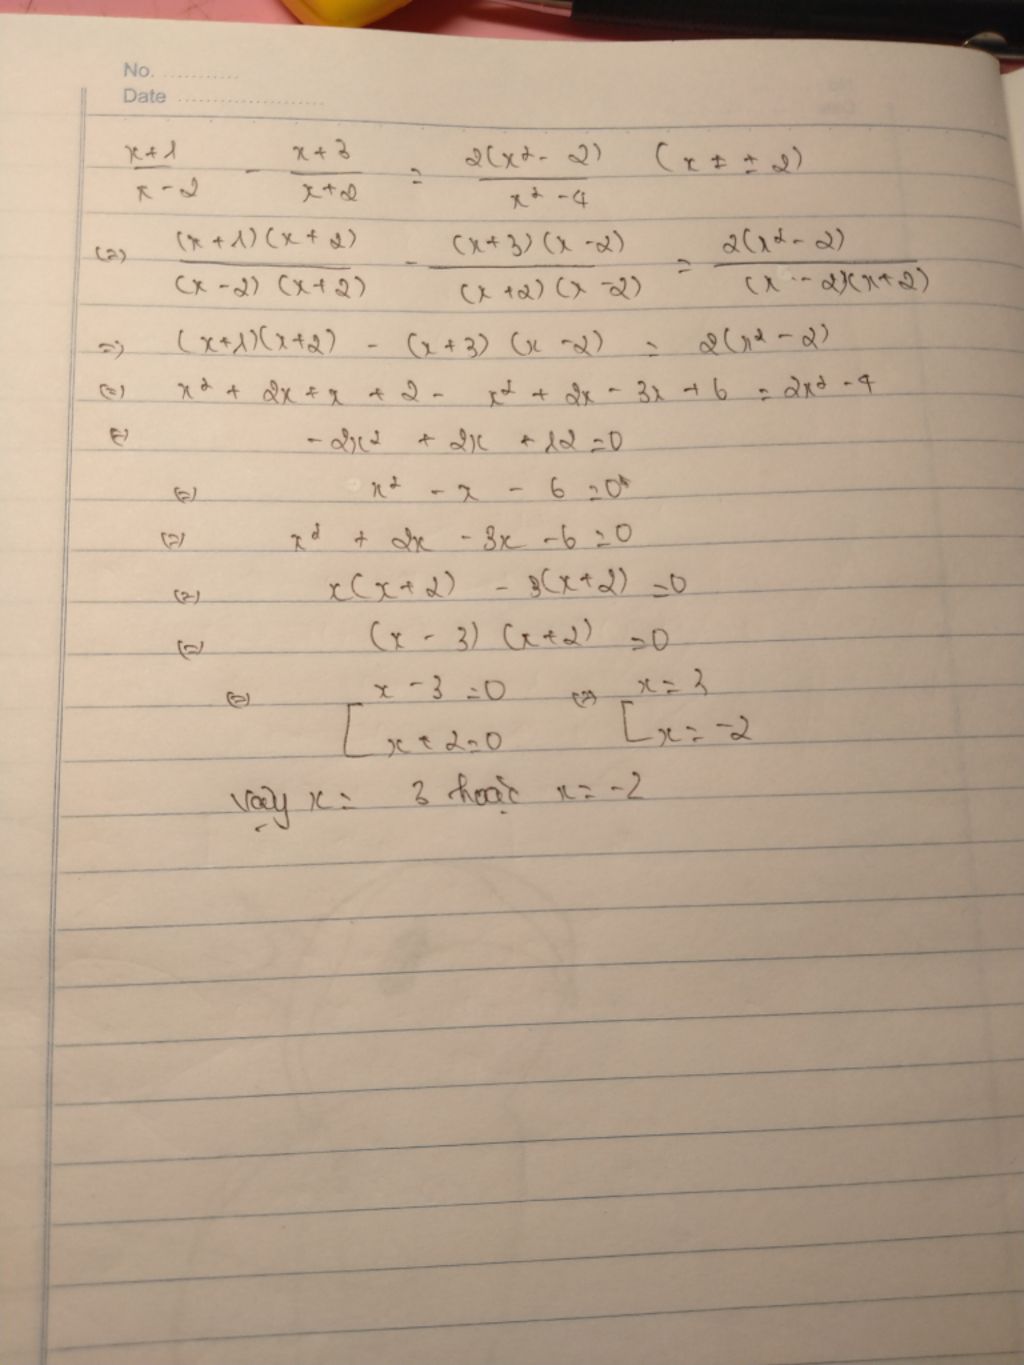 No. ............
Date ........................
x+1/x-2 - x+3/x+2 = 2(x²-2)/x²-4 (x ≠ ±2)
(=) (x+1)(x+2)/(x-2)(x+2) - (x+3)(x-2)/(x+2)(x-2) = 2(x²-2)/(x-2)(x+2)
=) (x+1)(x+2) - (x+3)(x-2) = 2(x²-2)
(=) x² + 2x + x + 2 - x² + 2x - 3x + 6 = 2x² - 4
(=) -2x² + 2x + 12 = 0
(=) x² - x - 6 = 0
(=) x² + 2x - 3x - 6 = 0
(=) x(x+2) - 3(x+2) = 0
(=) (x-3)(x+2) = 0
(=) [ x-3=0 (=) [ x=3
x+2=0 x=-2
vậy x = 3 hoặc x = -2